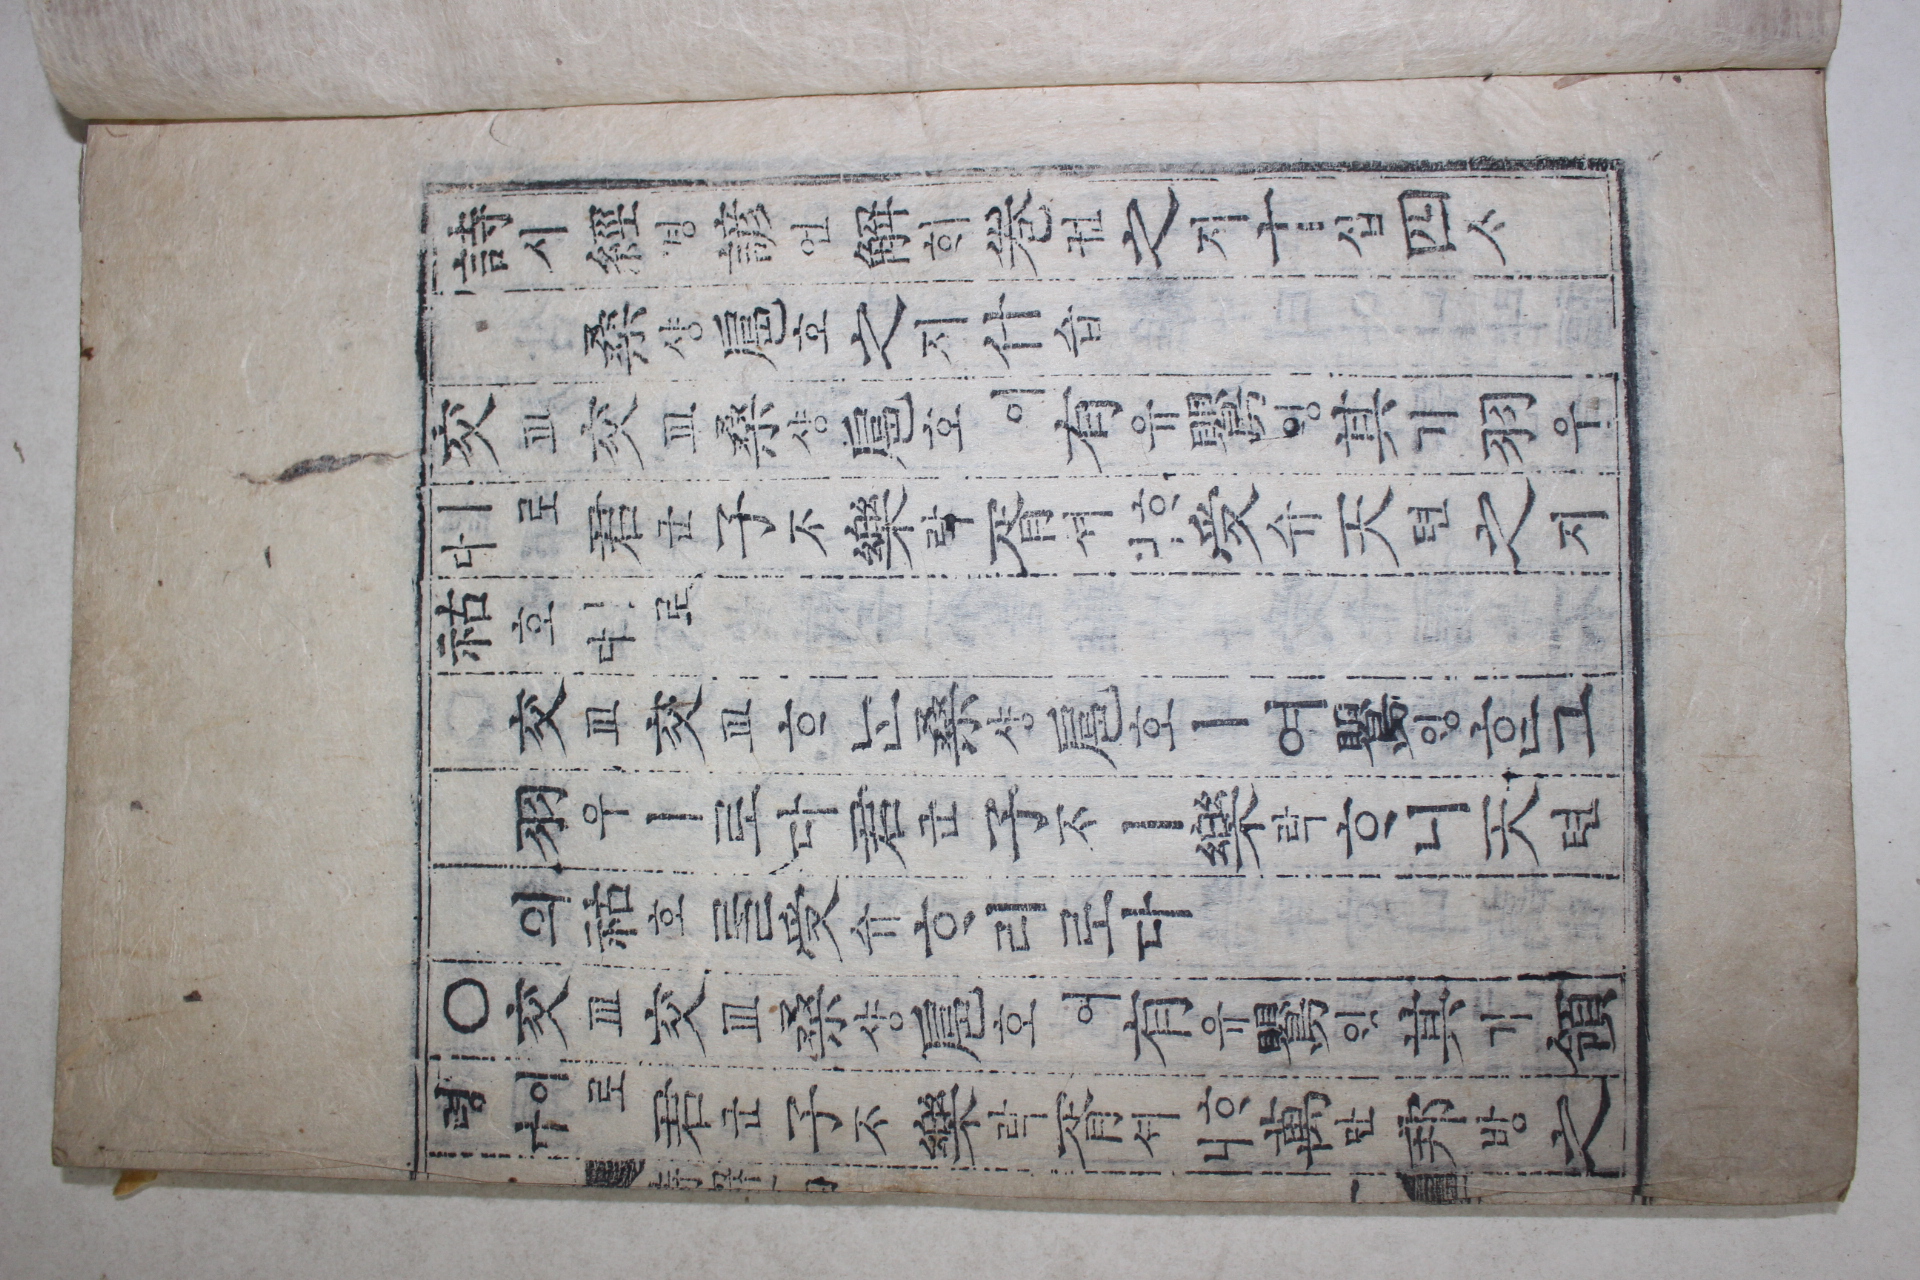 詩시經경諺언解ᄒᆡ卷권之지十십四ᄉᆞ
桑상扈호之지什습
交교交교桑상扈호이有유鶯ᄋᆡᆼ其기羽우
ㅣ로다君군子ᄌᆞ樂락胥셔ᄒᆞ니受슈天텬之지
祜호ㅣ로다
交교交교ᄒᆞᄂᆞᆫ桑상扈호ㅣ여鶯ᄋᆡᆼᄒᆞᆫ그
羽우ㅣ로다君군子ᄌᆞㅣ樂락ᄒᆞ니天텬
의祜호를受슈ᄒᆞ리로다
○交교交교桑상扈호이有유鶯ᄋᆡᆼ其기領
령이로다君군子ᄌᆞ樂락胥셔ᄒᆞ니萬만邦방之